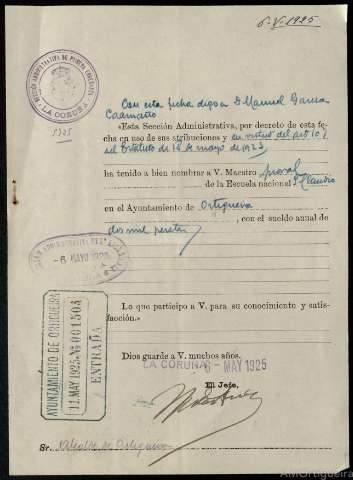 6-V-1925
SECCIÓN ADMINISTRATIVA DE PRIMERA ENSEÑANZA
LA CORUÑA
Con esta fecha digo a D. Manuel Garcia
Caamaño
«Esta Sección Administrativa, por decreto de esta fe-
cha en uso de sus atribuciones y en virtud del artº 10
del Estatuto de 18 de mayo de 1923
ha tenido a bien nombrar a V. Maestro
de la Escuela nacional
en el Ayuntamiento de Ortigueira
, con el sueldo anual de
dos mil pesetas
-6 MAYO 1925
Lo que participo a V. para su conocimiento y satis-
facción.»
AYUNTAMIENTO DE ORTIGUEIRA
11.MAY.1925.★ Nº 001504
ENTRADA
Dios guarde a V. muchos años.
LA CORUÑA 6 - MAY 1925
El Jefe,
Sr. Alcalde de Ortigueira
AMOrtigueira